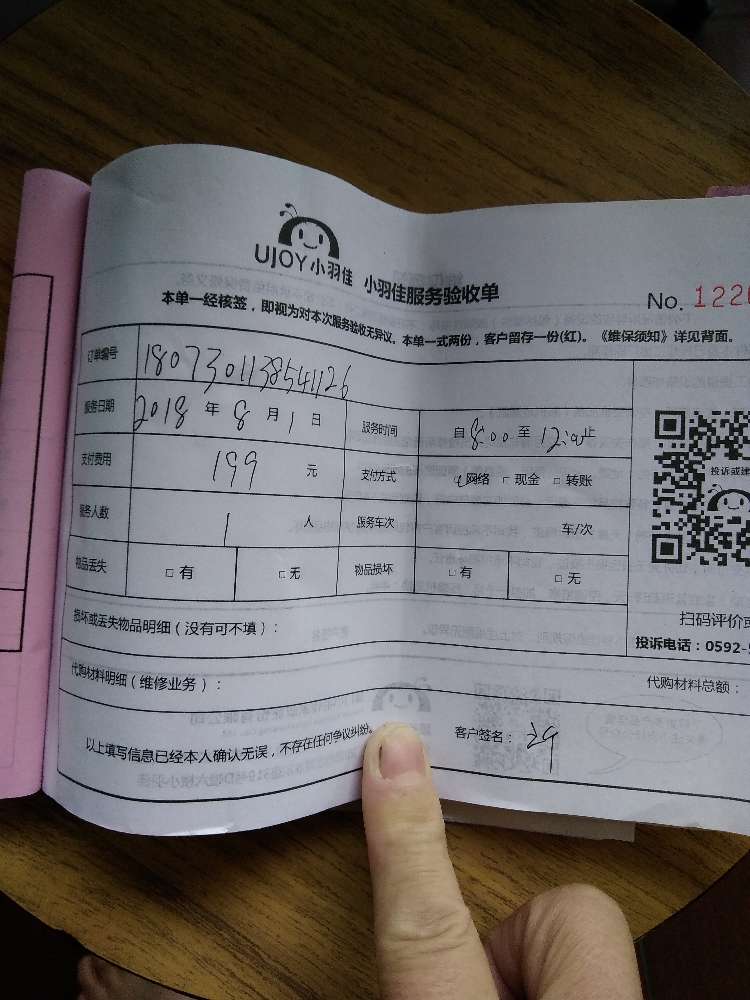 UJOY小羽佳 小羽佳服务验收单
No. 122
本单一经核签，即视为对本次服务验收无异议。本单一式两份，客户留存一份(红)。《维保须知》详见背面。
订单编号 1807301138541126
服务日期 2018 年 8 月 1 日 服务时间 自 8:00 至 12:00 止
支付费用 199 元 支付方式 网络 □ 现金 □ 转账
服务人数 1 人 服务车次 车/次
物品丢失 □ 有 □ 无 物品损坏 □ 有 □ 无
投诉或建
扫码评价或
投诉电话：0592-5
损坏或丢失物品明细（没有可不填）：
代购材料明细（维修业务）： 代购材料总额：
以上填写信息已经本人确认无误，不存在任何争议纠纷。 客户签名：